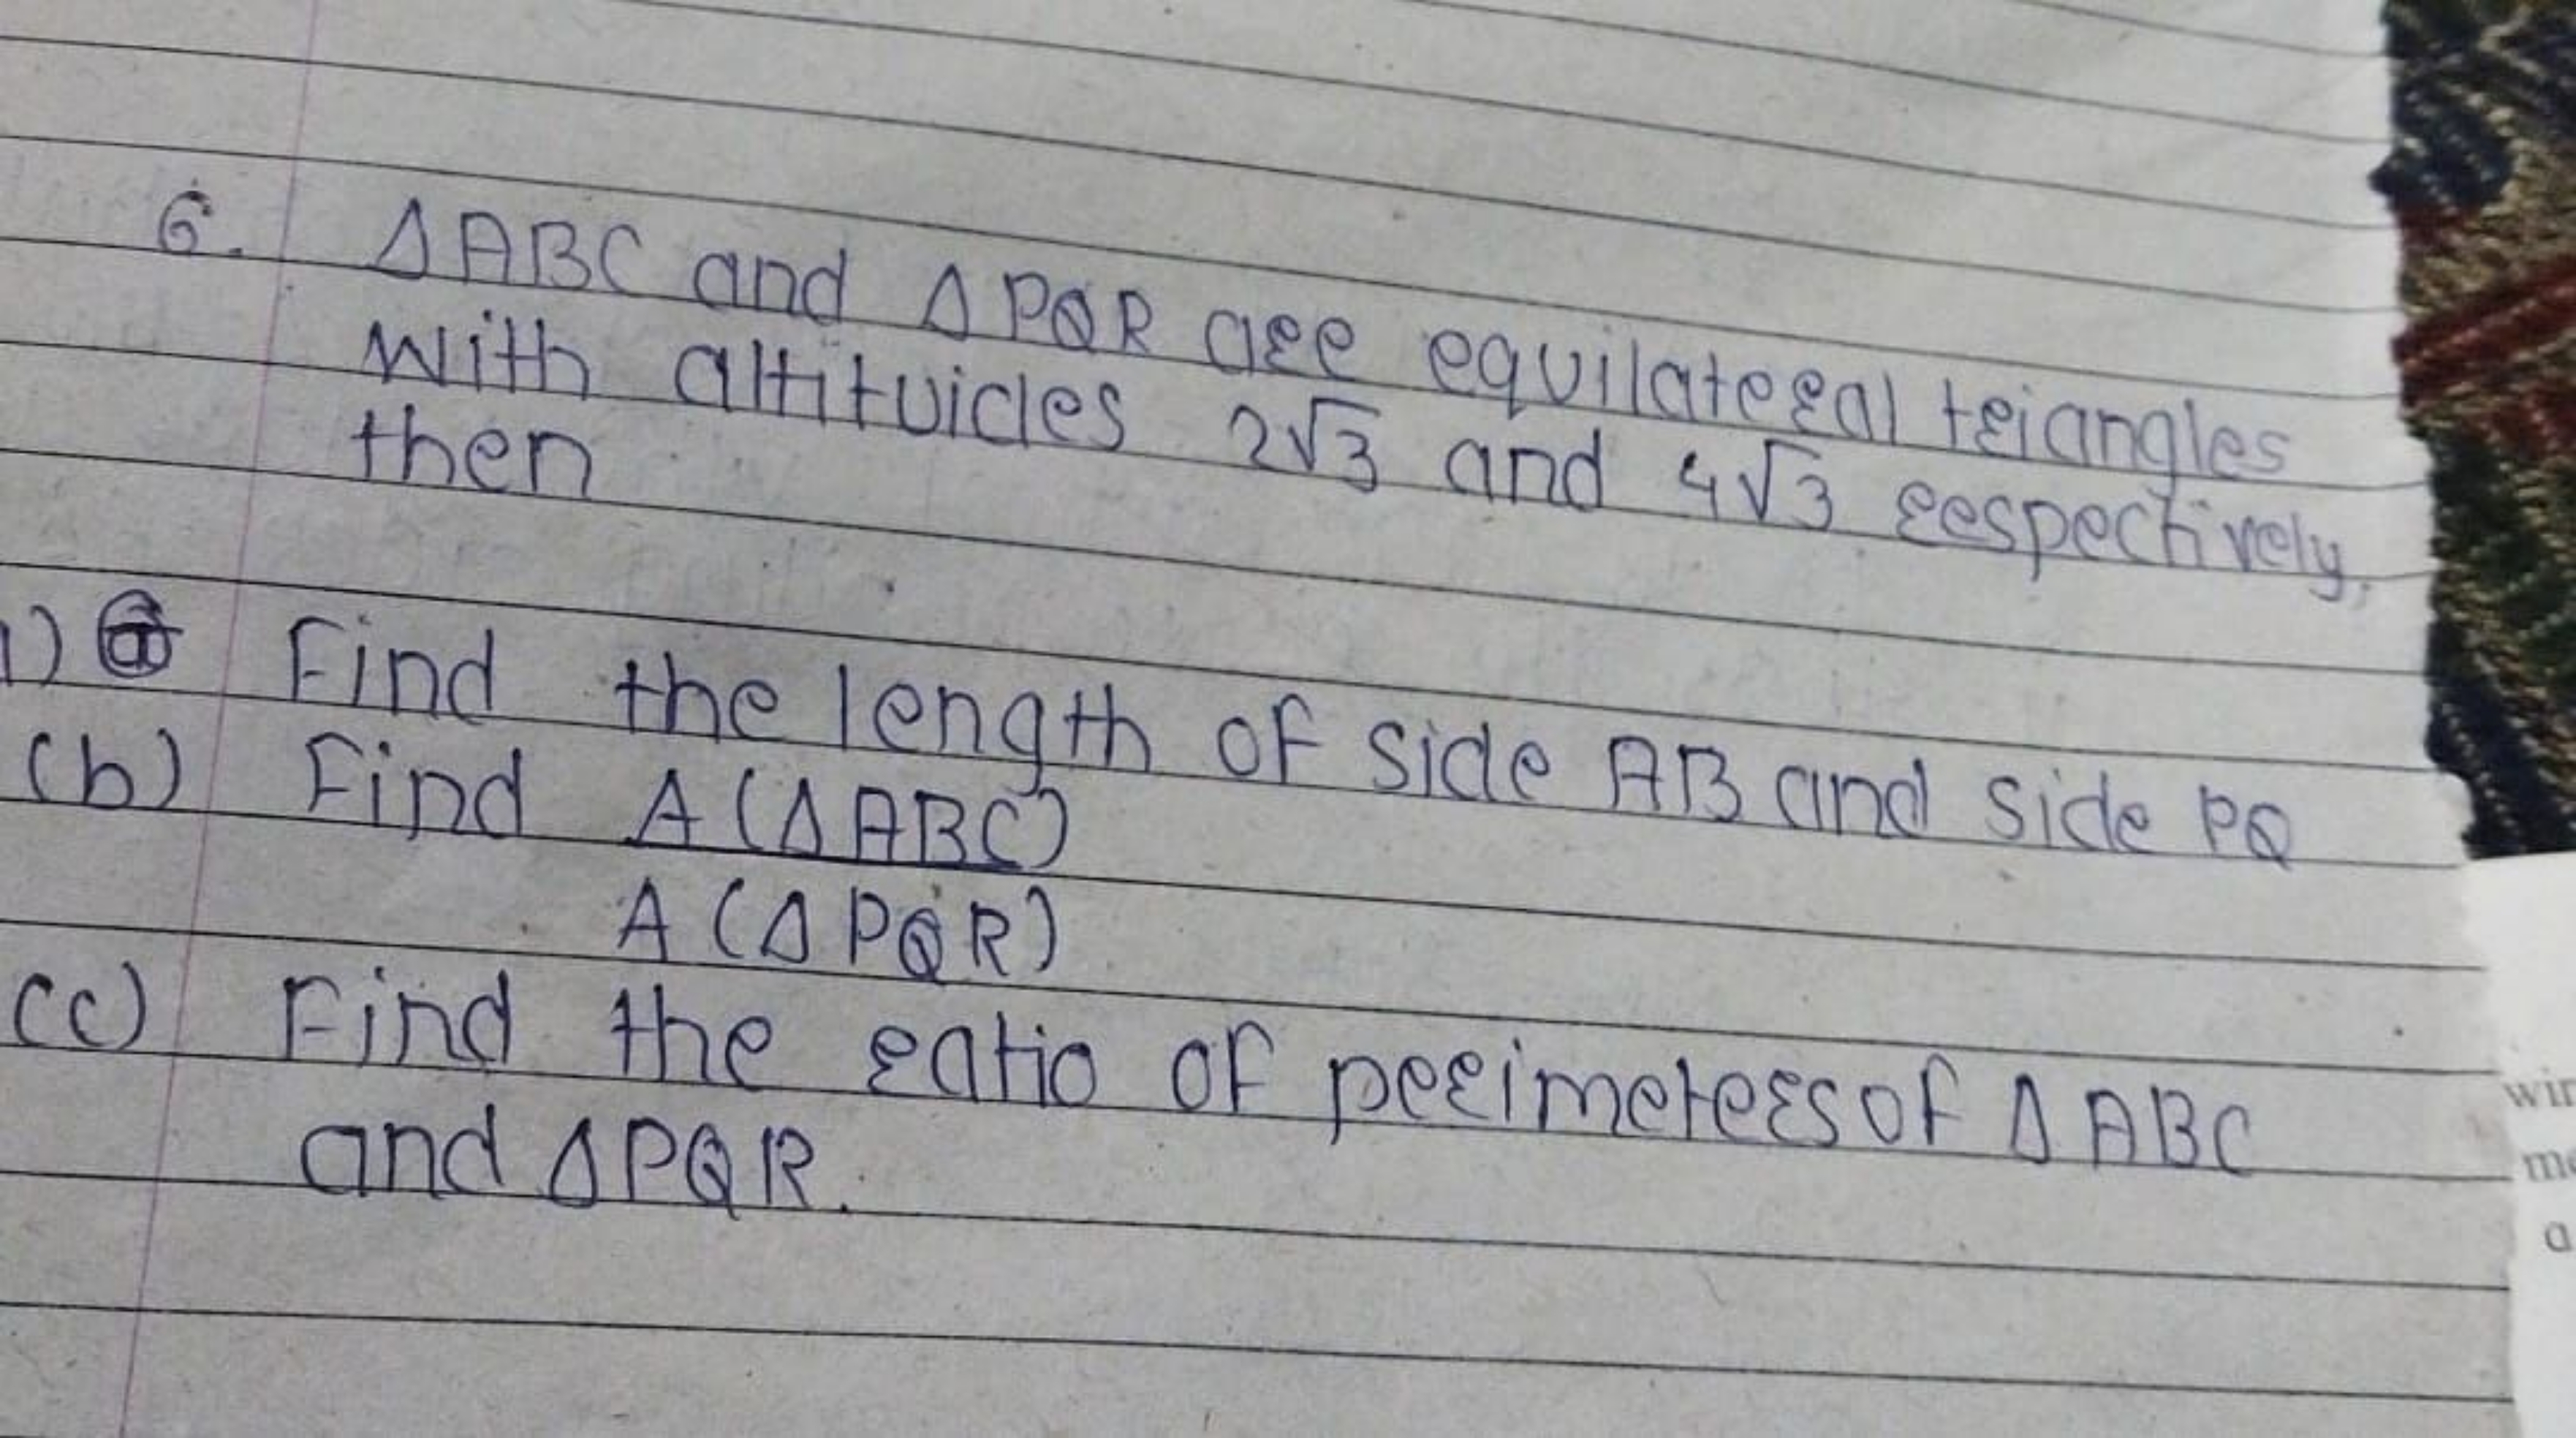 6. ΔABC and ΔPQR are equilateral triangles
with altituides 2√3 and 4√3 respectively,
then
1) Find the length of side AB and side PQ
(b) Find A(ΔABC)
A(ΔPQR)
(c) Find the ratio of perimeters of ΔABC
and ΔPQR.
wir
me
a